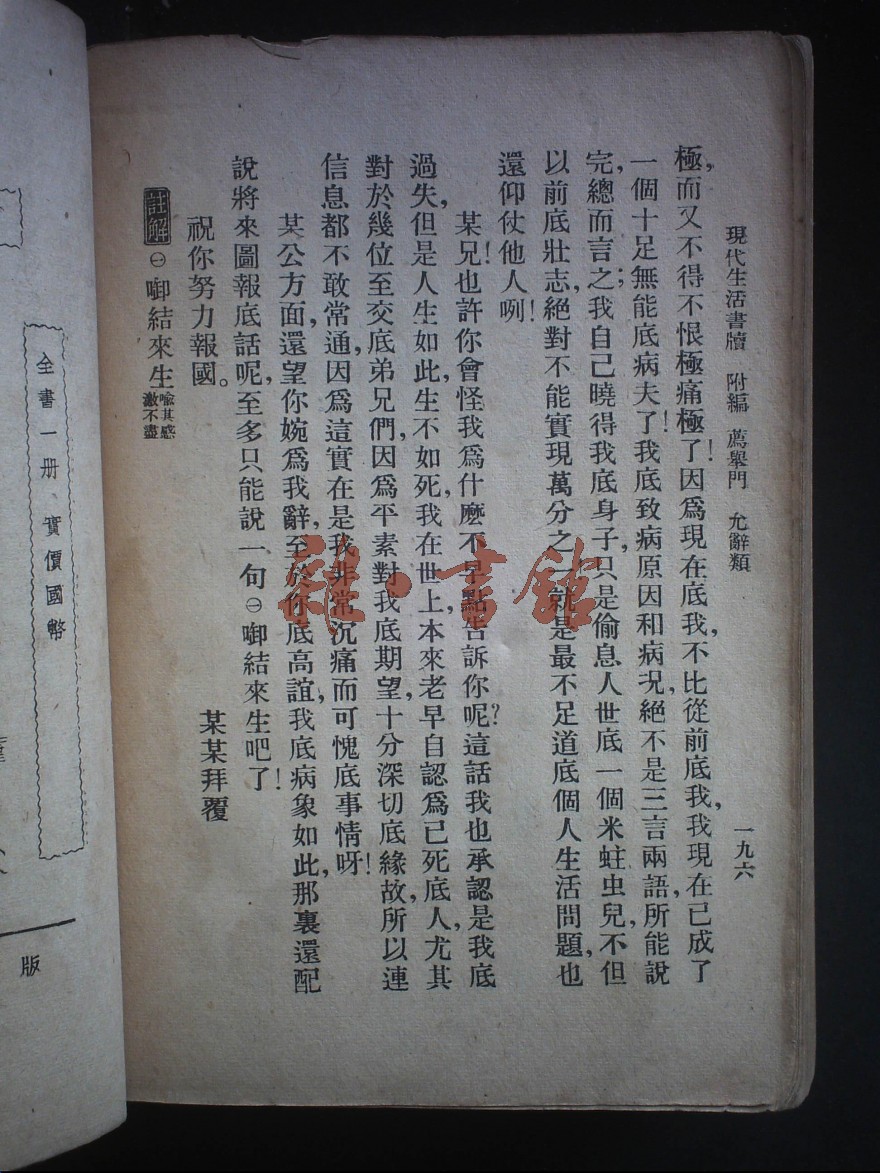 現代生活書牘 附編 薦舉門 允辭類 一九六
極，而又不得不恨極痛極了！因爲現在底我，不比從前底我，我現在已成了
一個十足無能底病夫了！我底致病原因和病況，絕不是三言兩語所能說
完，總而言之；我自己曉得我底身子，只是偷息人世底一個米蛀虫兒，不但
以前底壯志，絕對不能實現萬分之一，就是最不足道底個人生活問題，也
還仰仗他人咧！
某兄！也許你會怪我爲什麽不早點告訴你呢？這話我也承認是我底
過失，但是人生如此，生不如死，我在世上本來老早自認爲已死底人，尤其
對於幾位至交底弟兄們，因爲平素對我底期望，十分深切底緣故，所以連
信息都不敢常通，因爲這實在是我非常沉痛而可愧底事情呀！
某公方面，還望你婉爲我辭，至於你底高誼，我底病象如此，那裏還配
說將來圖報底話呢，至多只能說一句㊀啣結來生吧了！
祝你努力報國。
某某拜覆
註解 ㊀啣結來生 喻其感激不盡
全書一册 實價國幣
版
雜·書館